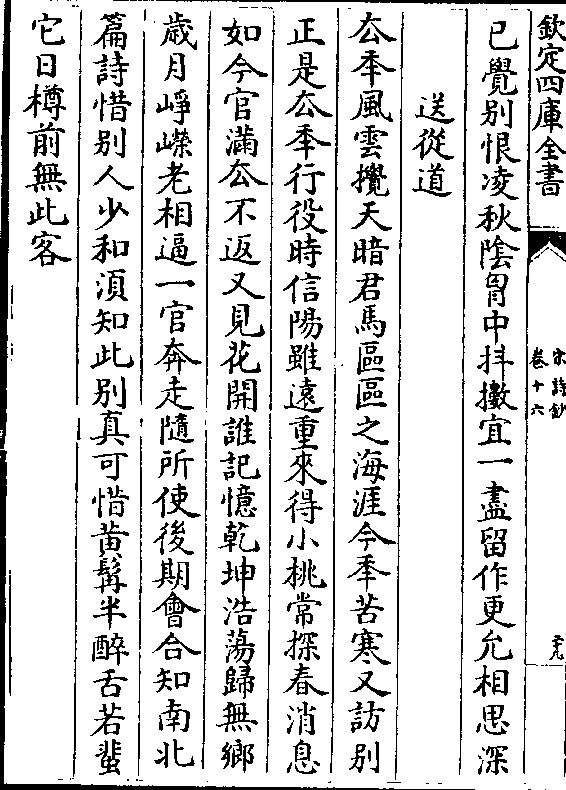 欽定四庫全書
宋詩鈔
卷十六
已覺别恨凌秋陰胷中抖擻宜一盡留作更允相思深
送從道
去年風雲攪天暗君馬區區之海涯今年苦寒又訪别
正是去年行役時信陽雖遠重來得小桃常探春消息
如今官滿去不返又見花開誰記憶乾坤浩蕩歸無鄉
歲月崢嶸老相逼一官奔走隨所使後期會合知南北
篇詩惜别人少和須知此别真可惜黄髯半醉舌若蜚
它日樽前無此客